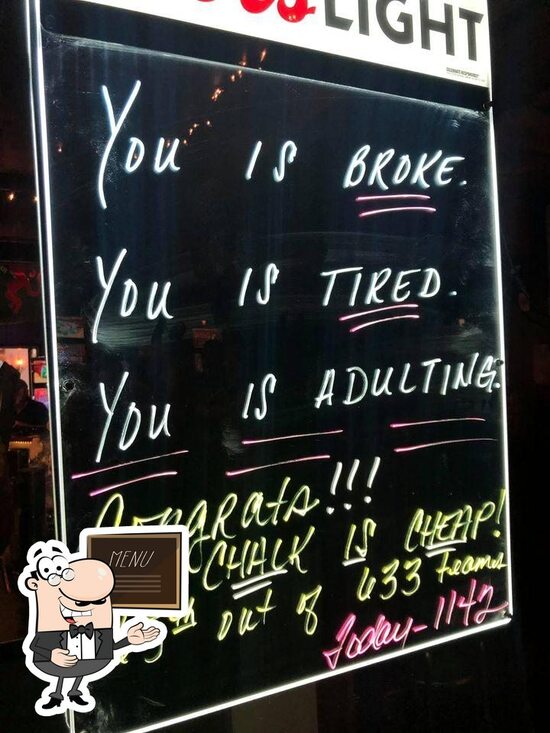 LIGHT
YOU IS BROKE.
YOU IS TIRED.
YOU IS ADULTING.
CONGRATS!!!
CHALK IS CHEAP!
out of 633 teams
Today - 1142
MENU